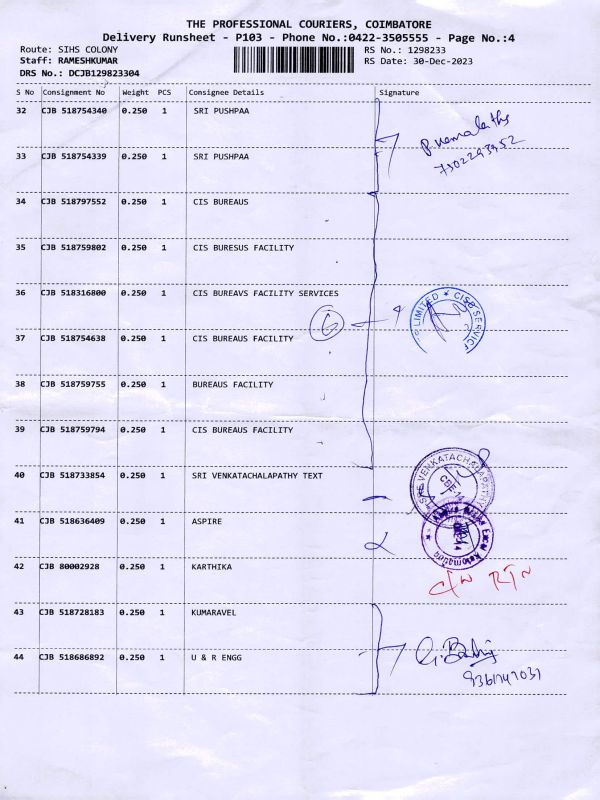 THE PROFESSIONAL COURIERS, COIMBATORE
Delivery Runsheet - P103 - Phone No.:0422-3505555 - Page No.:4
Route: SIHS COLONY RS No.: 1298233
Staff: RAMESHKUMAR RS Date: 30-Dec-2023
DRS No.: DCJB129823304
S No Consignment No Weight PCS Consignee Details Signature
32 CJB 518754340 0.250 1 SRI PUSHPAA
33 CJB 518754339 0.250 1 SRI PUSHPAA
7502293952
34 CJB 518797552 0.250 1 CIS BUREAUS
35 CJB 518759802 0.250 1 CIS BURESUS FACILITY
36 CJB 518316800 0.250 1 CIS BUREAVS FACILITY SERVICES
LIMITED * CISB SERVICE
6
37 CJB 518754638 0.250 1 CIS BUREAUS FACILITY
38 CJB 518759755 0.250 1 BUREAUS FACILITY
39 CJB 518759794 0.250 1 CIS BUREAUS FACILITY
40 CJB 518733854 0.250 1 SRI VENKATACHALAPATHY TEXT
VENKATACHALAPATHY
41 CJB 518636409 0.250 1 ASPIRE
42 CJB 80002928 0.250 1 KARTHIKA
RTN
43 CJB 518728183 0.250 1 KUMARAVEL
44 CJB 518686892 0.250 1 U & R ENGG